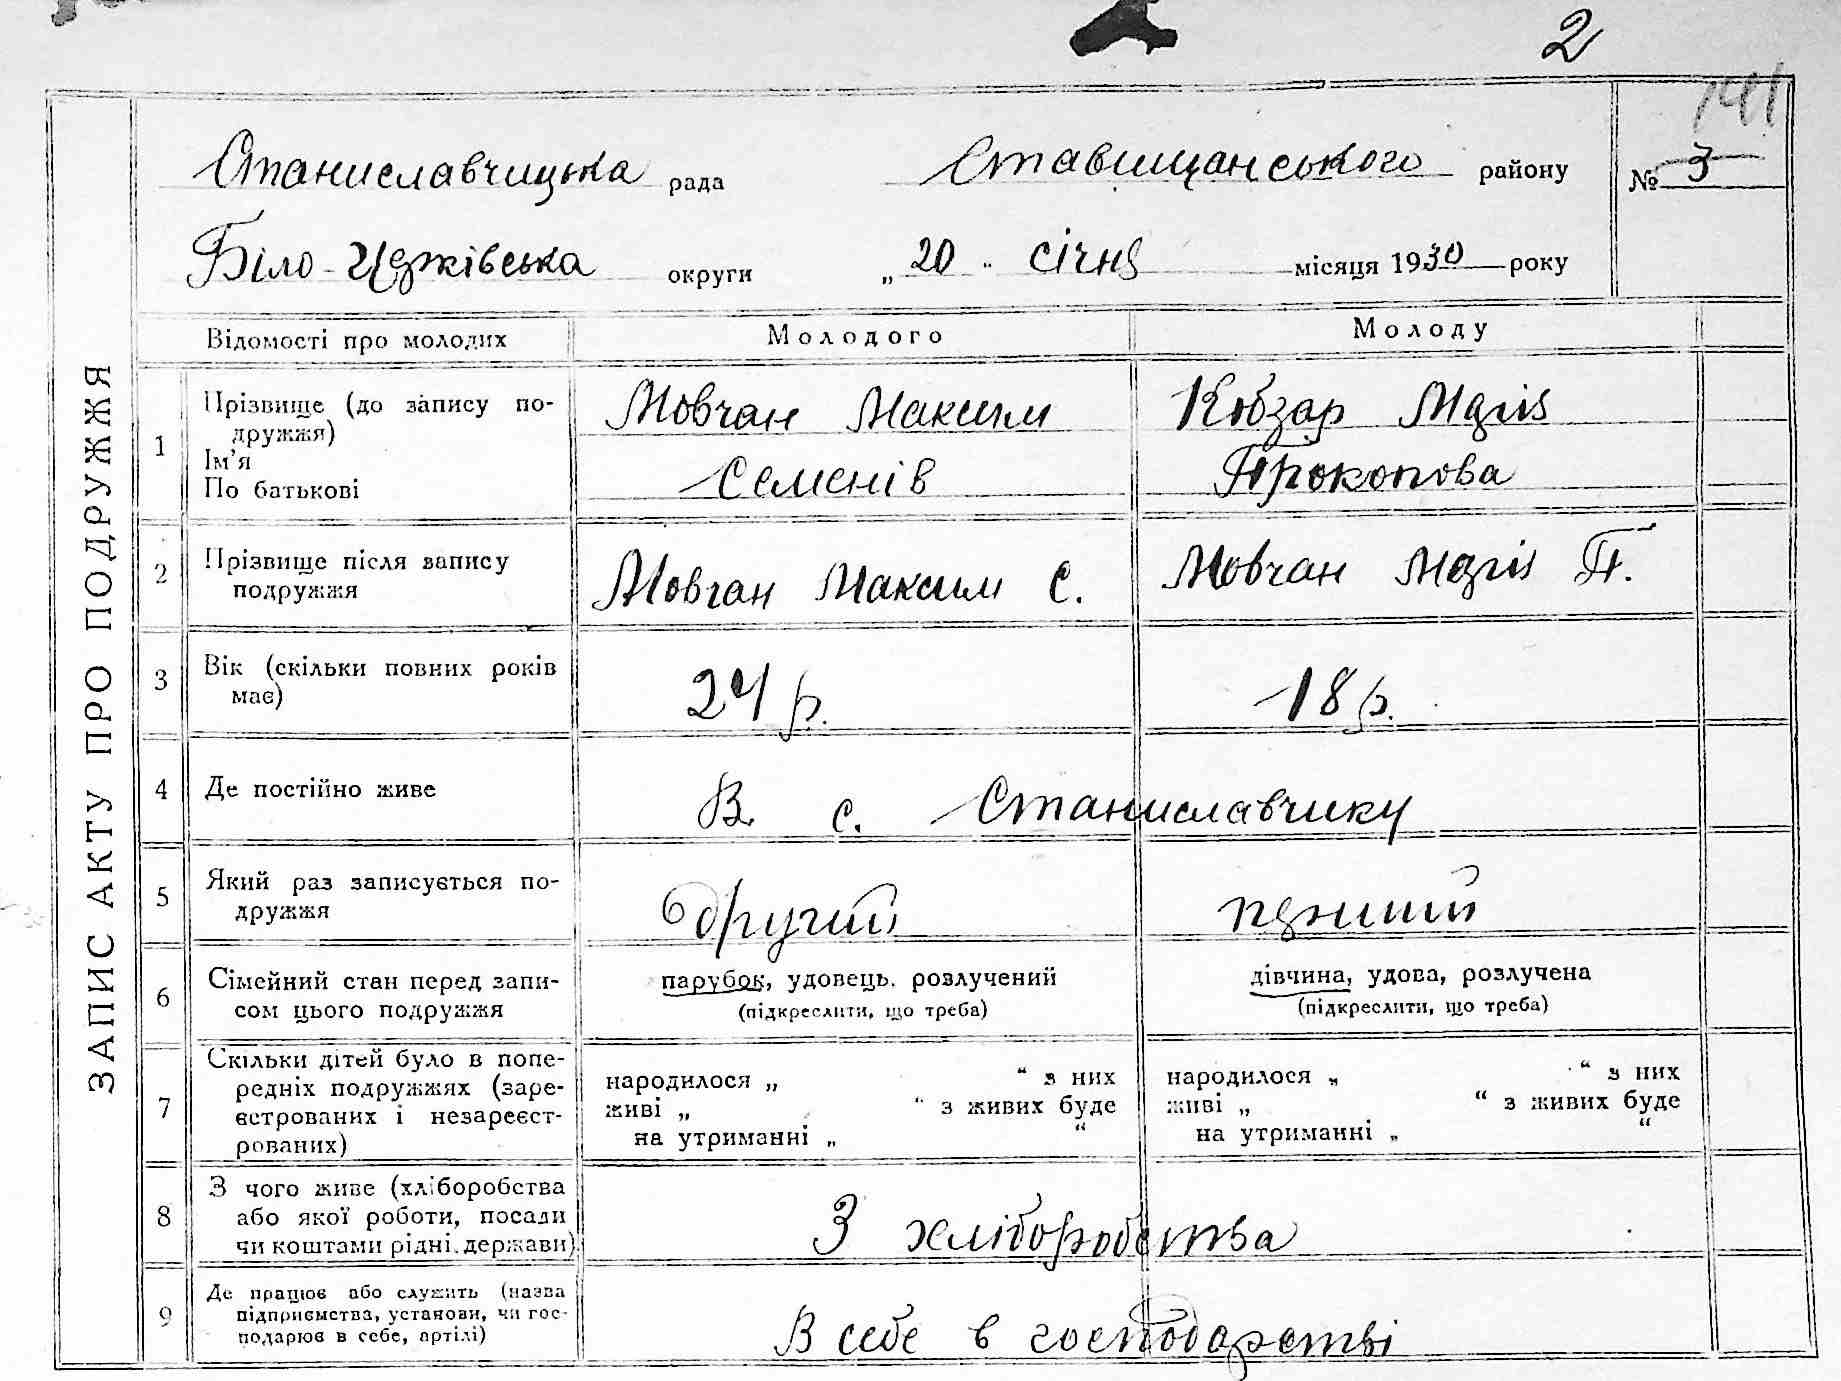 2
141
Станиславчицька рада Ставищанського району № 3
Біло-Церківська округи „ 20 " січня місяця 1930 року
ЗАПИС АКТУ ПРО ПОДРУЖЖЯ
Відомості про молодих Молодого Молоду
1 Прізвище (до запису по-
дружжя)
Ім'я
По батькові
Мовчан Максим
Семенів
Кобзар Марія
Прокопова
2 Прізвище після запису
подружжя
Мовчан Максим С.
Мовчан Марія П.
3 Вік (скільки повних років
має)
24 р.
18 р.
4 Де постійно живе
В с. Станиславчику
5 Який раз записується по-
дружжя
другий
перший
6 Сімейний стан перед запи-
сом цього подружжя
парубок, удовець, розлучений
(підкреслити, що треба)
дівчина, удова, розлучена
(підкреслити, що треба)
7 Скільки дітей було в попе-
редніх подружжях (заре-
єстрованих і незареєст-
рованих)
народилося „ “ з них
живі „ “ з живих буде
на утриманні „ “
народилося „ “ з них
живі „ “ з живих буде
на утриманні „ “
8 З чого живе (хліборобства
або якої роботи, посади
чи коштами рідні, держави)
З хліборобства
9 Де працює або служить (назва
підприємства, установи, чи гос-
подарює в себе, артілі)
В себе в господарстві